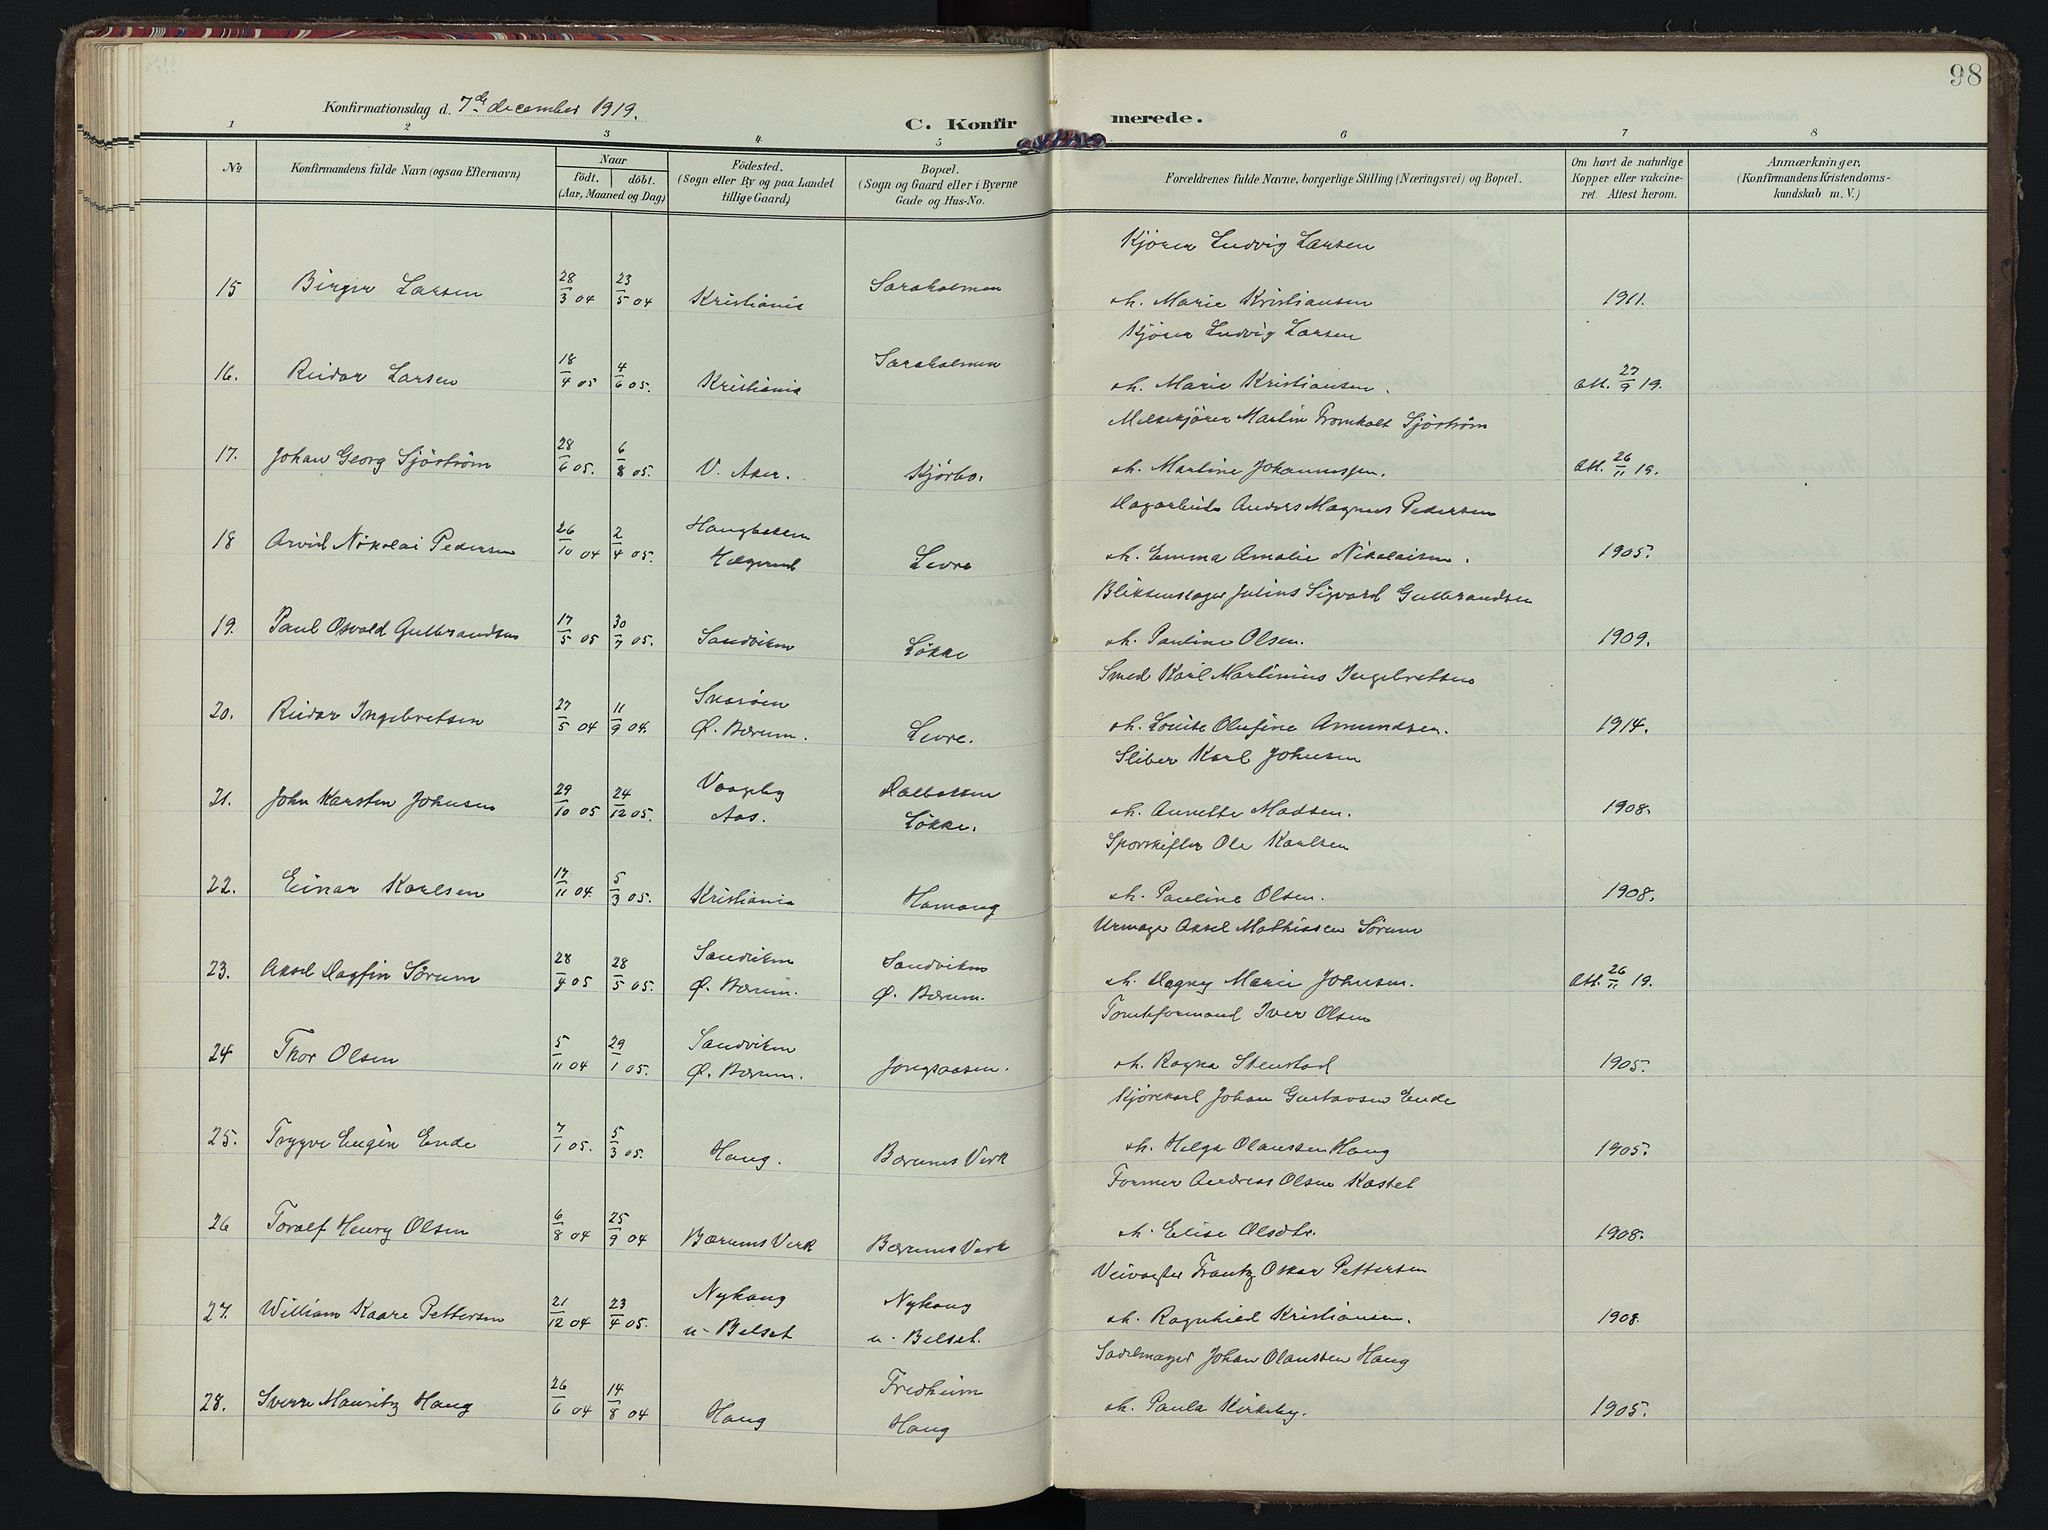 98
Konfirmationsdag d. 7de december 1919.
C. Konfirmerede.
1 2 3 4 5 6 7 8
No
Konfirmandens fulde Navn (ogsaa Efternavn)
Naar
födt. döbt.
(Aar, Maaned og Dag)
Födested.
(Sogn eller By og paa Landet
tillige Gaard)
Bopæl.
(Sogn og Gaard eller i Byerne
Gade og Hus-No.
Forældrenes fulde Navne, borgerlige Stilling (Næringsvei) og Bopæl.
Om havt de naturlige
Kopper eller vakcine-
ret. Attest herom.
Anmærkninger.
(Konfirmandens Kristendoms-
kundskab m. V.)
Kjører Ludvig Larsen
15 Birger Larsen 28/3 04 23/5 04 Kristiania Saraholmen h. Marie Kristiansen 1911.
Kjører Ludvig Larsen
16. Reidar Larsen 18/4 05 4/6 05. Kristiania Saraholmen h. Marie Kristiansen. Att. 27/9 19.
Melkekjører Martin Tromholt Sjöström
17. Johan Georg Sjöström 28/6 05. 6/8 05. V. Aker. Kjørbo. h. Martine Johannessen. Att. 26/11 19.
Dagarbeider Anders Magnus Pedersen
Haugbakken
18 Arvid Nikolai Pedersen 26/10 04 2/4 05. Helgerud Levre h. Emma Amalie Nikolaisen. 1905.
Blikkenslager Julius Sigvard Gulbrandsen
19. Paul Osvald Gulbrandsen 17/5 05 30/7 05. Sandviken Løkke h. Pauline Olsen. 1909.
Smed Karl Martinius Ingebretsen
Snarøen
20. Reidar Ingebretsen 27/5 04 11/9 04. Ø. Bærum. Levre. h. Louise Olufine Amundsen. 1914.
Sliber Karl Johnsen
Vaagsby Dalbakken
21. John Karsten Johnsen 29/10 05 24/12 05. Aas. Løkke. h. Annette Madsen. 1908.
Sporskifter Ole Karlsen
22. Einar Karlsen 17/11 04. 5/3 05. Kristiania Hamang h. Pauline Olsen. 1908.
Urmager Aksel Mathissen Sørum
Sandviken Sandviken
23. Aksel Dagfin Sørum 28/4 05 28/5 05. Ø. Bærum. Ø. Bærum. h. Dagny Marie Johnsen. Att. 26/11 19.
Tomteformand Iver Olsen
Sandviken
24 Thor Olsen 5/11 04 29/1 05. Ø. Bærum. Jongsaasen. h. Ragna Stenstad 1905.
Kjørekarl Johan Gustavsen Ende
25. Trygve Eugén Ende 7/1 05. 5/3 05. Haug. Bærums Verk h. Helga Olaussen Haug 1905.
Former Andreas Olsen Kastet
26 Toralf Henry Olsen 6/8 04 25/9 04 Bærums Verk Bærums Verk h. Elise Olsdtr. 1908.
Veivogter Frantz Oskar Pettersen
Nyhaug Nyhaug
27. William Kaare Pettersen 21/12 04 23/4 05. u. Belset u. Belset. h. Ragnhild Kristiansen. 1908.
Sadelmager Johan Olaussen Haug
Fredheim
28. Sverre Mauritz Haug 26/6 04 14/8 04 Haug Haug h. Paula Kirkeby. 1905.